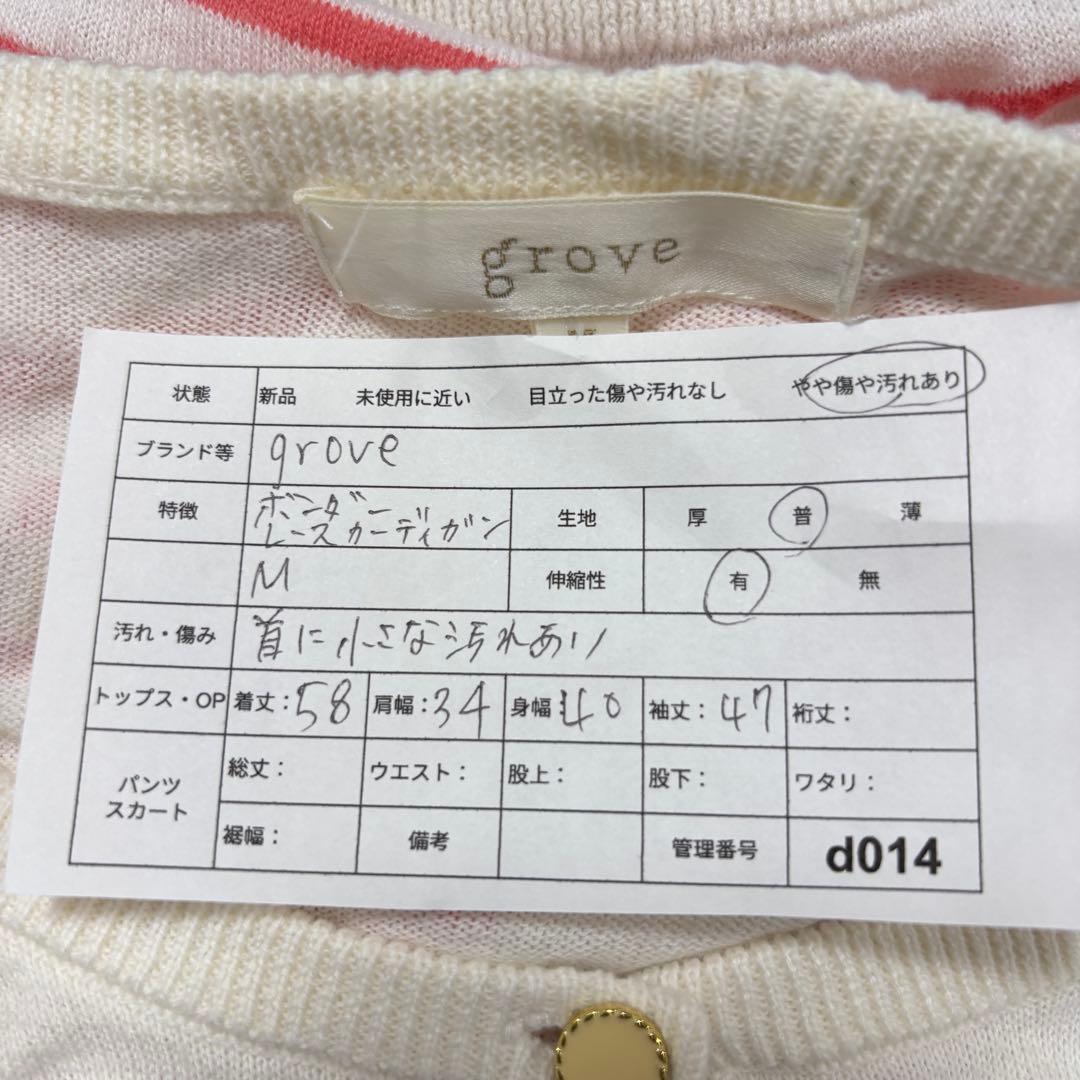 grove
M
状態 新品 未使用に近い 目立った傷や汚れなし やや傷や汚れあり
ブランド等 grove
特徴 ボーダー
レースカーディガン 生地 厚 普 薄
M 伸縮性 有 無
汚れ・傷み 首に小さな汚れあり
トップス・OP 着丈:58 肩幅:34 身幅:40 袖丈:47 裄丈:
パンツ
スカート 総丈: ウエスト: 股上: 股下: ワタリ:
裾幅: 備考 管理番号 d014